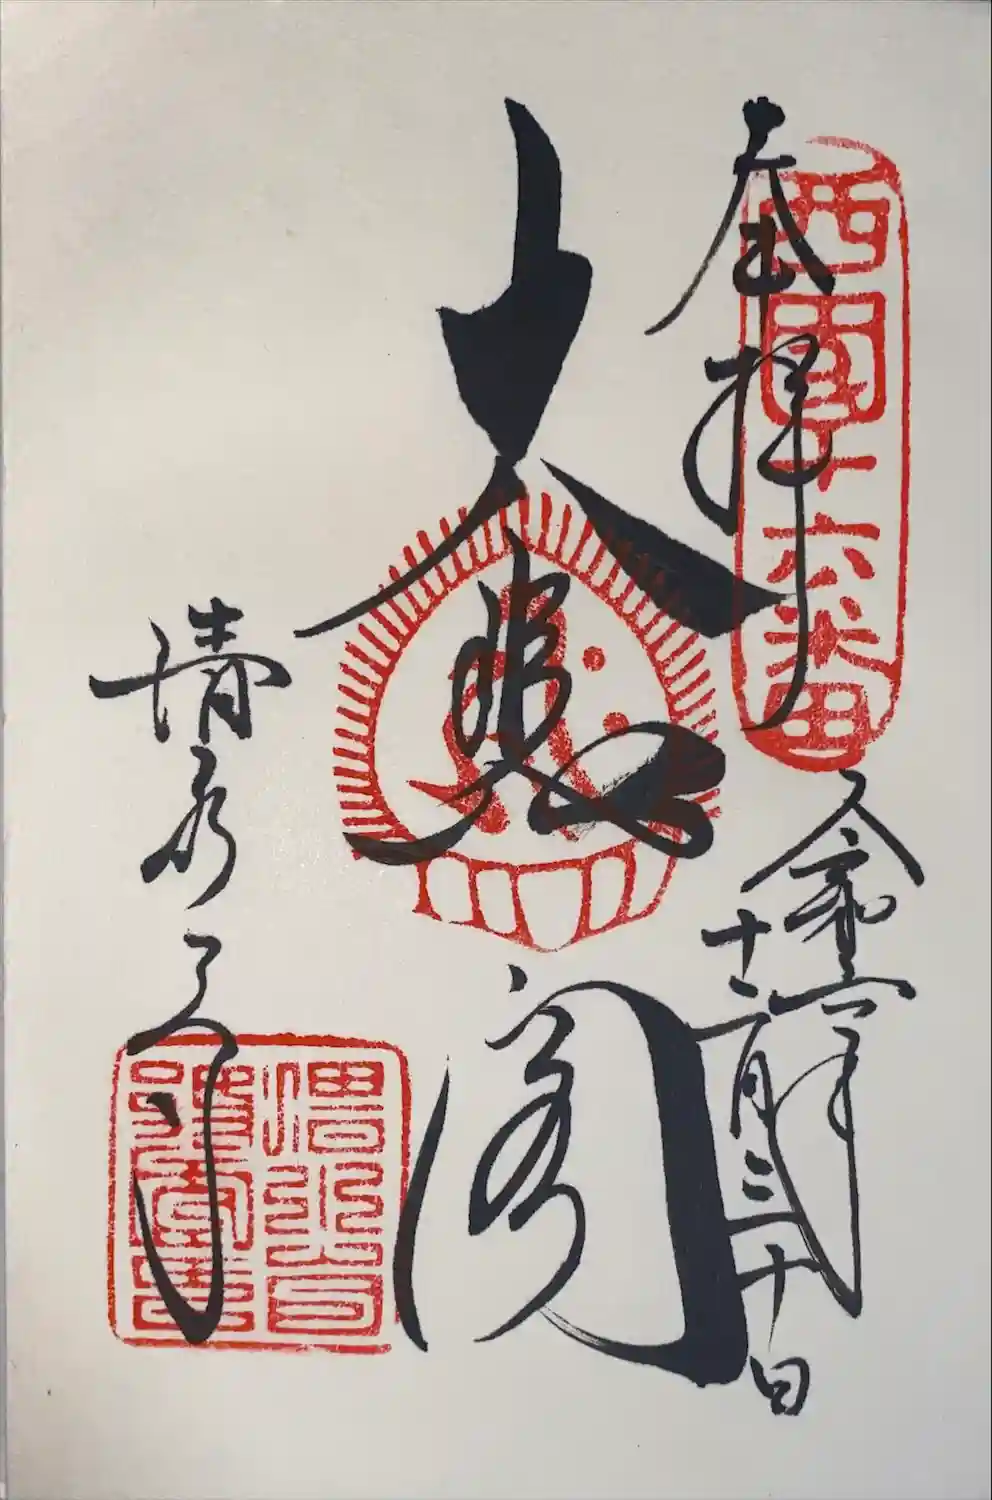 奉拝
西国十六番
令和六年
十二月三十日
大悲閣
清水寺